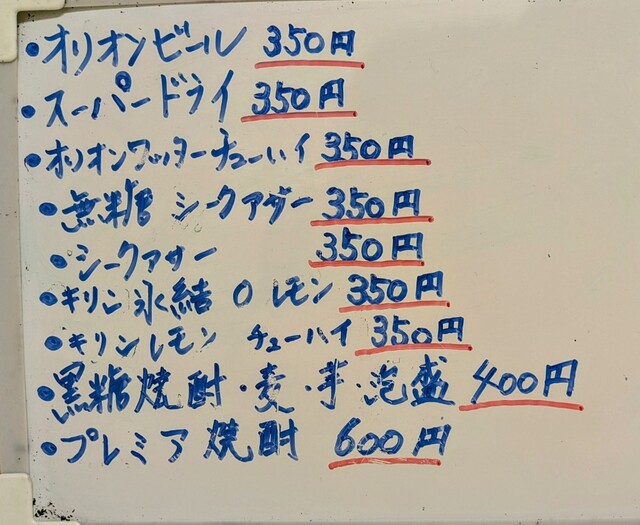 ・オリオンビール 350円
・スーパードライ 350円
・オリオンワッターチューハイ 350円
・無糖 シークアサー 350円
・シークアサー 350円
・キリン氷結 0 レモン 350円
・キリンレモン チューハイ 350円
・黒糖焼酎・麦・芋・泡盛 400円
・プレミア焼酎 600円